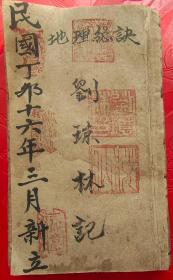 地理總訣
劉琼林記
民國丁卯十六年三月新立